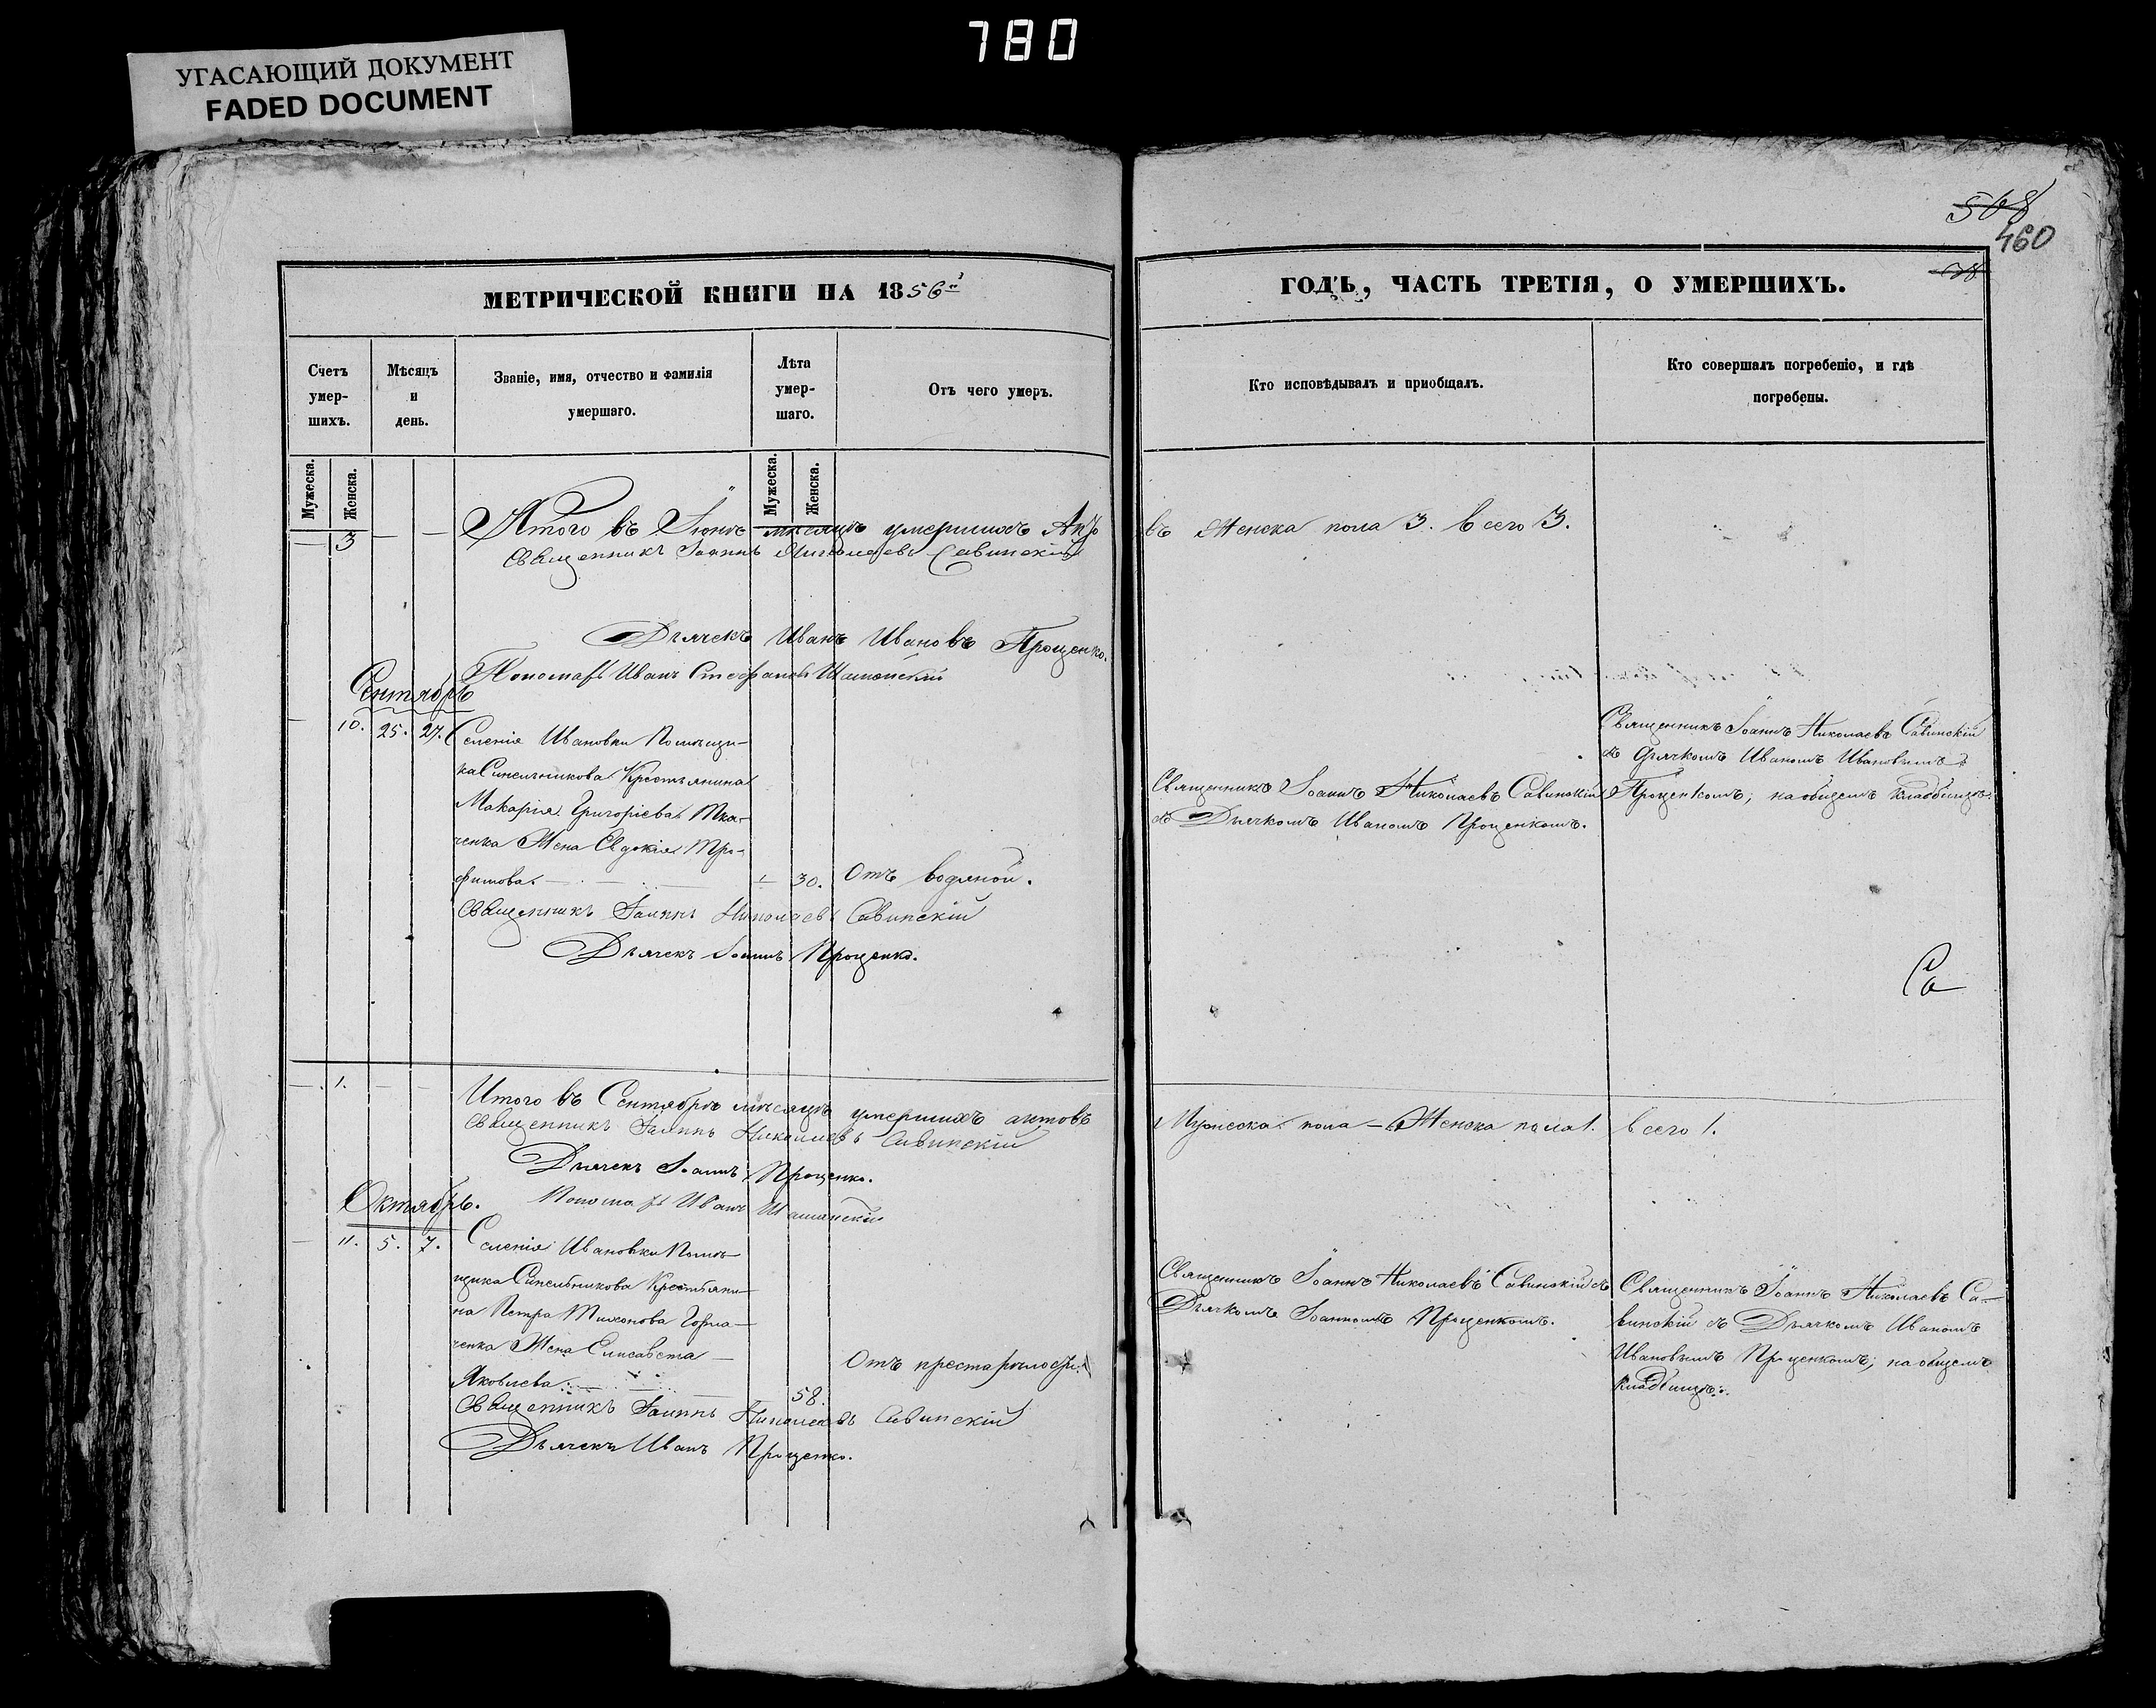 780
УГАСАЮЩИЙ ДОКУМЕНТ
FADED DOCUMENT
568
460
МЕТРИЧЕСКОЙ КНИГИ НА 1856й
Счетъ умер-шихъ.
Мѣсяцъ и день.
Званіе, имя, отчество и фамилія умершаго.
Лѣта умер-шаго.
Отъ чего умеръ.
Мужеска.
Женска.
Мужеска.
Женска.
— 3 — — Итого въ Іюнѣ мѣсяцѣ умершихъ Акто
Священникъ Іоаннъ Николаевъ Савинскій
Дьячекъ Иванъ Ивановъ Проценко.
Пономарь Иванъ Стефановъ
Сентябрь
— 10. 25. 27. Селенія Ивановки Помѣщи-
ка Синельникова Крестьянина
Макарія Григоріева Тка-
ченка Жена Евдокія Тро-
фимова. — 30. Отъ водяной.
Священникъ Іоаннъ Николаевъ Савинскій
Дьячекъ Іоаннъ Проценко.
— 1. — — Итого въ Сентябрѣ мѣсяцѣ умершихъ актовъ
Священникъ Іоаннъ Николаевъ Савинскій
Дьячекъ Іоаннъ Проценко.
Пономарь Иванъ
Октябрь.
— 11. 5. 7. Селенія Ивановки Помѣ-
щика Синельникова Крестьяни-
на Петра Тихонова Горба-
ченка Жена Елисавета —
Яковлева. — 58. Отъ престарѣлости.
Священникъ Іоаннъ Николаевъ Савинскій
Дьячекъ Иванъ Проценко.
ГОДЪ, ЧАСТЬ ТРЕТІЯ, О УМЕРШИХЪ.
Кто исповѣдывалъ и приобщалъ.
Кто совершалъ погребеніе, и гдѣ погребены.
въ Женска пола 3. Всего 3.
Священникъ Іоаннъ Николаевъ Савинскій
съ Дьячкомъ Иваномъ Проценкомъ.
Священникъ Іоаннъ Николаевъ Савинскій
съ Дьячкомъ Иваномъ Ивановымъ
Проценкомъ, на общемъ кладбищѣ.
Са
Мужеска пола — Женска пола 1. всего 1.
Священникъ Іоаннъ Николаевъ Савинскій съ
Дьячкомъ Іоанномъ Проценкомъ.
Священникъ Іоаннъ Николаевъ Са-
винскій съ Дьячкомъ Иваномъ
Ивановымъ Проценкомъ, на общемъ
кладбищѣ.